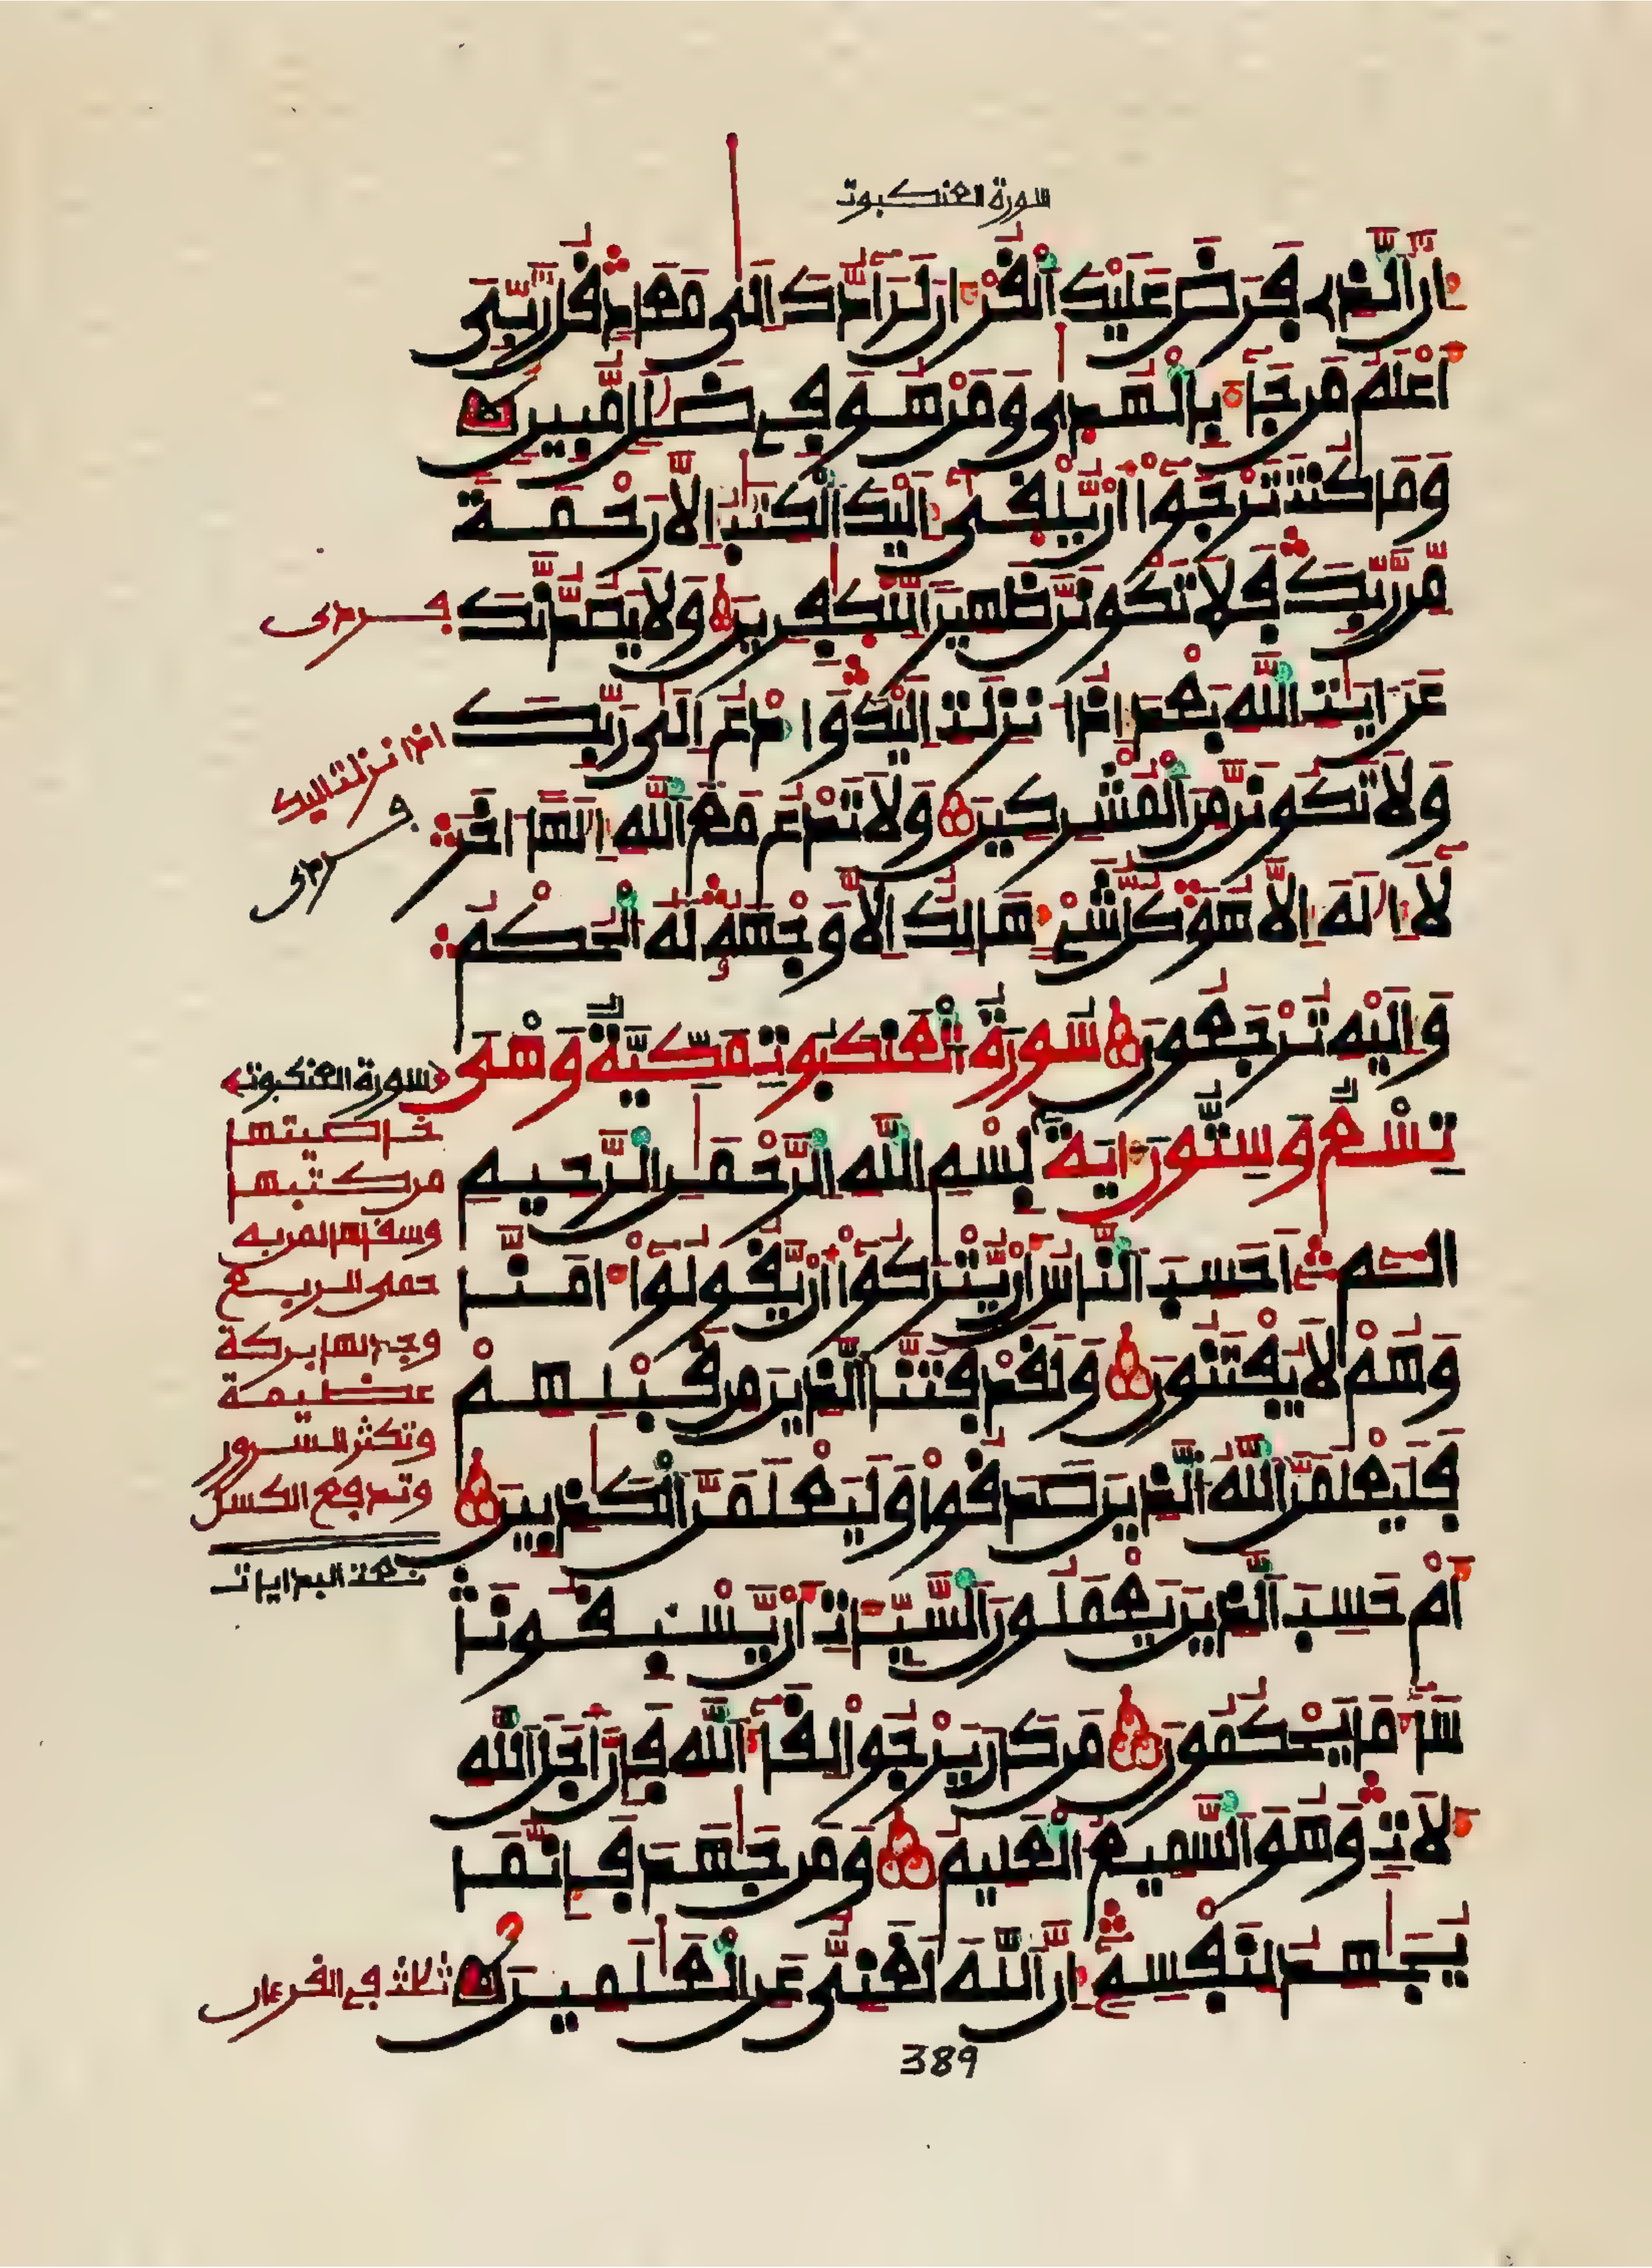 سورة العنكبوت
إِنَّ ٱلَّذِے فَرَضَ عَلَيْكَ ٱلْقُرْءَانَ لَرَآدُّكَ إِلَىٰ مَعَادٍ قُل رَّبِّىَ
أَعْلَمُ مَن جَآءَ بِالْهُدَىٰ وَمَنْ هُوَ فِے ضَلَٰلٍ مُّبِينٍ
وَمَا كُنتَ تَرْجُوٓاْ أَنْ يُّلْقَىٰٓ إِلَيْكَ ٱلْكِتَٰبُ إِلَّا رَحْمَةً
مِّن رَّبِّكَ فَلَا تَكُونَنَّ ظَهِيراً لِّلْكَٰفِرِينَ وَلَا يَصُدُّنَّكَ
فردى
عَنَ ايَٰتِ ٱللَّهِ بَعْدَ إِذُ انزِلَتِ الَيْكَ وَادْعُ إِلَىٰ رَبِّكَ
وَلَا تَكُونَنَّ مِنَ ٱلْمُشْرِكِينَ وَلَا تَدْعُ مَعَ ٱللَّهِ إِلَٰهاً اخَرَ
اذا نزلت اليك
فردى
لَآ إِلَٰهَ إِلَّا هُوَ كُلُّ شَےْءٍ هَالِكٌ اِلَّا وَجْهَهُۥ لَهُ ٱلْحُكْمُ
وَإِلَيْهِ تُرْجَعُونَ سُورَةُ ٱلْعَنكَبُوتِ مَكِّيَّةٌ وَهْىَ
تِسْعٌ وَسِتُّونَ ءَايَةً بِسْمِ ٱللَّهِ ٱلرَّحْمَٰنِ ٱلرَّحِيمِ
أَلَٓمِّٓ أَحَسِبَ ٱلنَّاسُ أَنْ يُّتْرَكُوٓاْ أَنْ يَّقُولُوٓاْ ءَامَنَّا
وَهُمْ لَا يُفْتَنُونَ وَلَقَدْ فَتَنَّا ٱلَّذِينَ مِن قَبْلِهِمْ
فَلَيَعْلَمَنَّ ٱللَّهُ ٱلَّذِينَ صَدَقُواْ وَلَيَعْلَمَنَّ ٱلْكَٰذِبِينَ
أَمْ حَسِبَ ٱلَّذِينَ يَعْمَلُونَ ٱلسَّيِّـَٔاتِ أَنْ يَّسْبِقُونَا
سَآءَ مَا يَحْكُمُونَ مَن كَانَ يَرْجُواْ لِقَآءَ ٱللَّهِ فَإِنَّ أَجَلَ ٱللَّهِ
لَأٓتٍ وَهُوَ ٱلسَّمِيعُ ٱلْعَلِيمُ وَمَن جَٰهَدَ فَإِنَّمَا
يُجَٰهِدُ لِنَفْسِهِۦٓ إِنَّ ٱللَّهَ لَغَنِىٌّ عَنِ ٱلْعَٰلَمِينَ
سورة العنكبوت
خاصيتها
من كتبها
وسقاها لمن به
حمى الربع
وجد لها بركة
عظيمة
وتكثر السرور
وتدفع الكسل
ثلث في القرءان
389